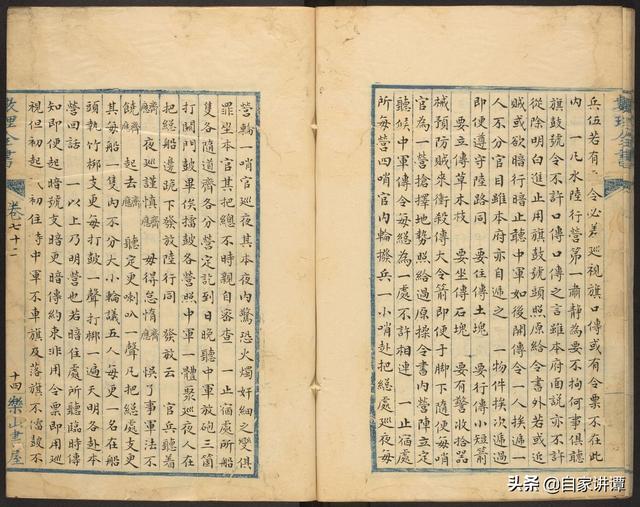 兵伍若有 令必差巡視旗口傳或有令票不在此
內 一凡水陸行營第一肅靜為要不拘何事俱聽
旗鼓號令不許口傳口傳之言雖本府面說亦不許
從除明白進止用旗鼓號頭照原給令書外若或近
賊或欲暗行暗止聽中軍如後開傳令一人挨遞一
人不分官目雖本府亦自遞之 一物件挨次遞過
即便遵守陸路同 要住傳土塊 要行傳小短箭
要立傳草本枝 要坐傳石塊 要有警收拾器
械預防賊來衝殺傳大令箭即便于脚下隨便每哨
官為一營擇地勢照給過原操令書內營陣立定
聽候中軍傳令每總為一處不許相連 一止宿處
所每營四哨官內輪撥兵一小哨赴把總處巡夜每
營輪一哨官巡夜其本夜內驚恐火燭奸細之變俱
罪坐本官其把總不時親自審查 一止宿處所船
隻各隨道齊各分營定訖到日晚聽中軍放砲三箇
打關門鼓畢俟擂鼓各營照中軍一體聚巡夜人在
把總船邊跪下發放陸行同 發放云 官兵聽着
夜巡謹慎 毋得怠惰 悞了事軍法不
饒 起去 聽定更喇叭一聲凡把總處支更
其每船一隻內不分大小輪議五人每更一名在船
頭執竹梆支更每打鼓一聲打梆一遍天明各赴本
營回話 一以上乃明營也若暗住處所聽臨時傳
知即便起暗號支暗更暗傳約束非用令票即用巡
視但初起 初住時中軍不車旗及落旗不擂鼓不
理全書
卷七十二
十四
樂山書屋
头条 @自家讲谭